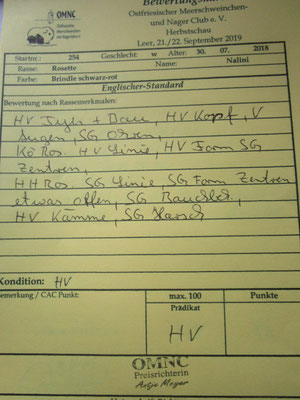 OMNC
Ostfriesischer Meerschweinchen-
und Nager Club e. V.
Herbstschau
Leer, 21./22. September 2019
Startnr.: 254 Geschlecht: w Alter: 30. 07. 2018
Rasse: Rosette Name: Nalini
Farbe: Brindle schwarz-rot
Englischer-Standard
Bewertung nach Rassemerkmalen:
HV Typ + Bau, HV Kopf, V
Augen, SG Ohren,
Kö Ros. HV Linie, HV Form SG
Zentren,
HH Ros. SG Linie, SG Form Zentren
etwas offen, SG Bauchbeh.,
HV Kämme, SG Harsch
Kondition: HV
Bemerkung / CAC Punkt:
max. 100 Punkte
Prädikat
HV
OMNC
Preisrichterin
Antje Meyer